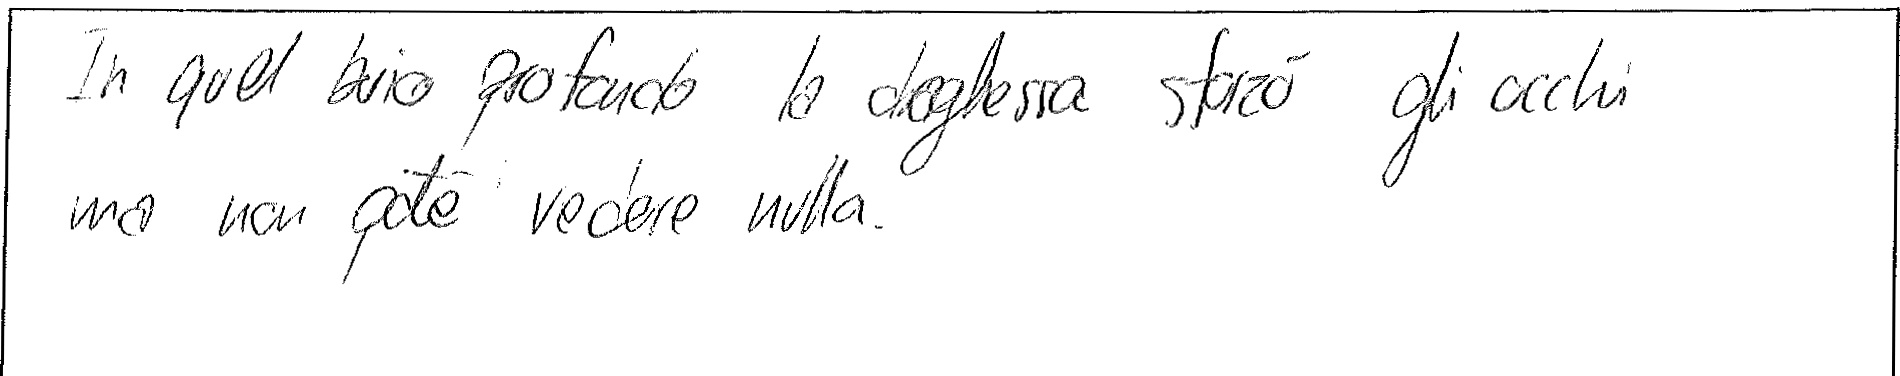 In quel buio profondo la dogheressa sforzò gli occhi
ma non poté vedere nulla.